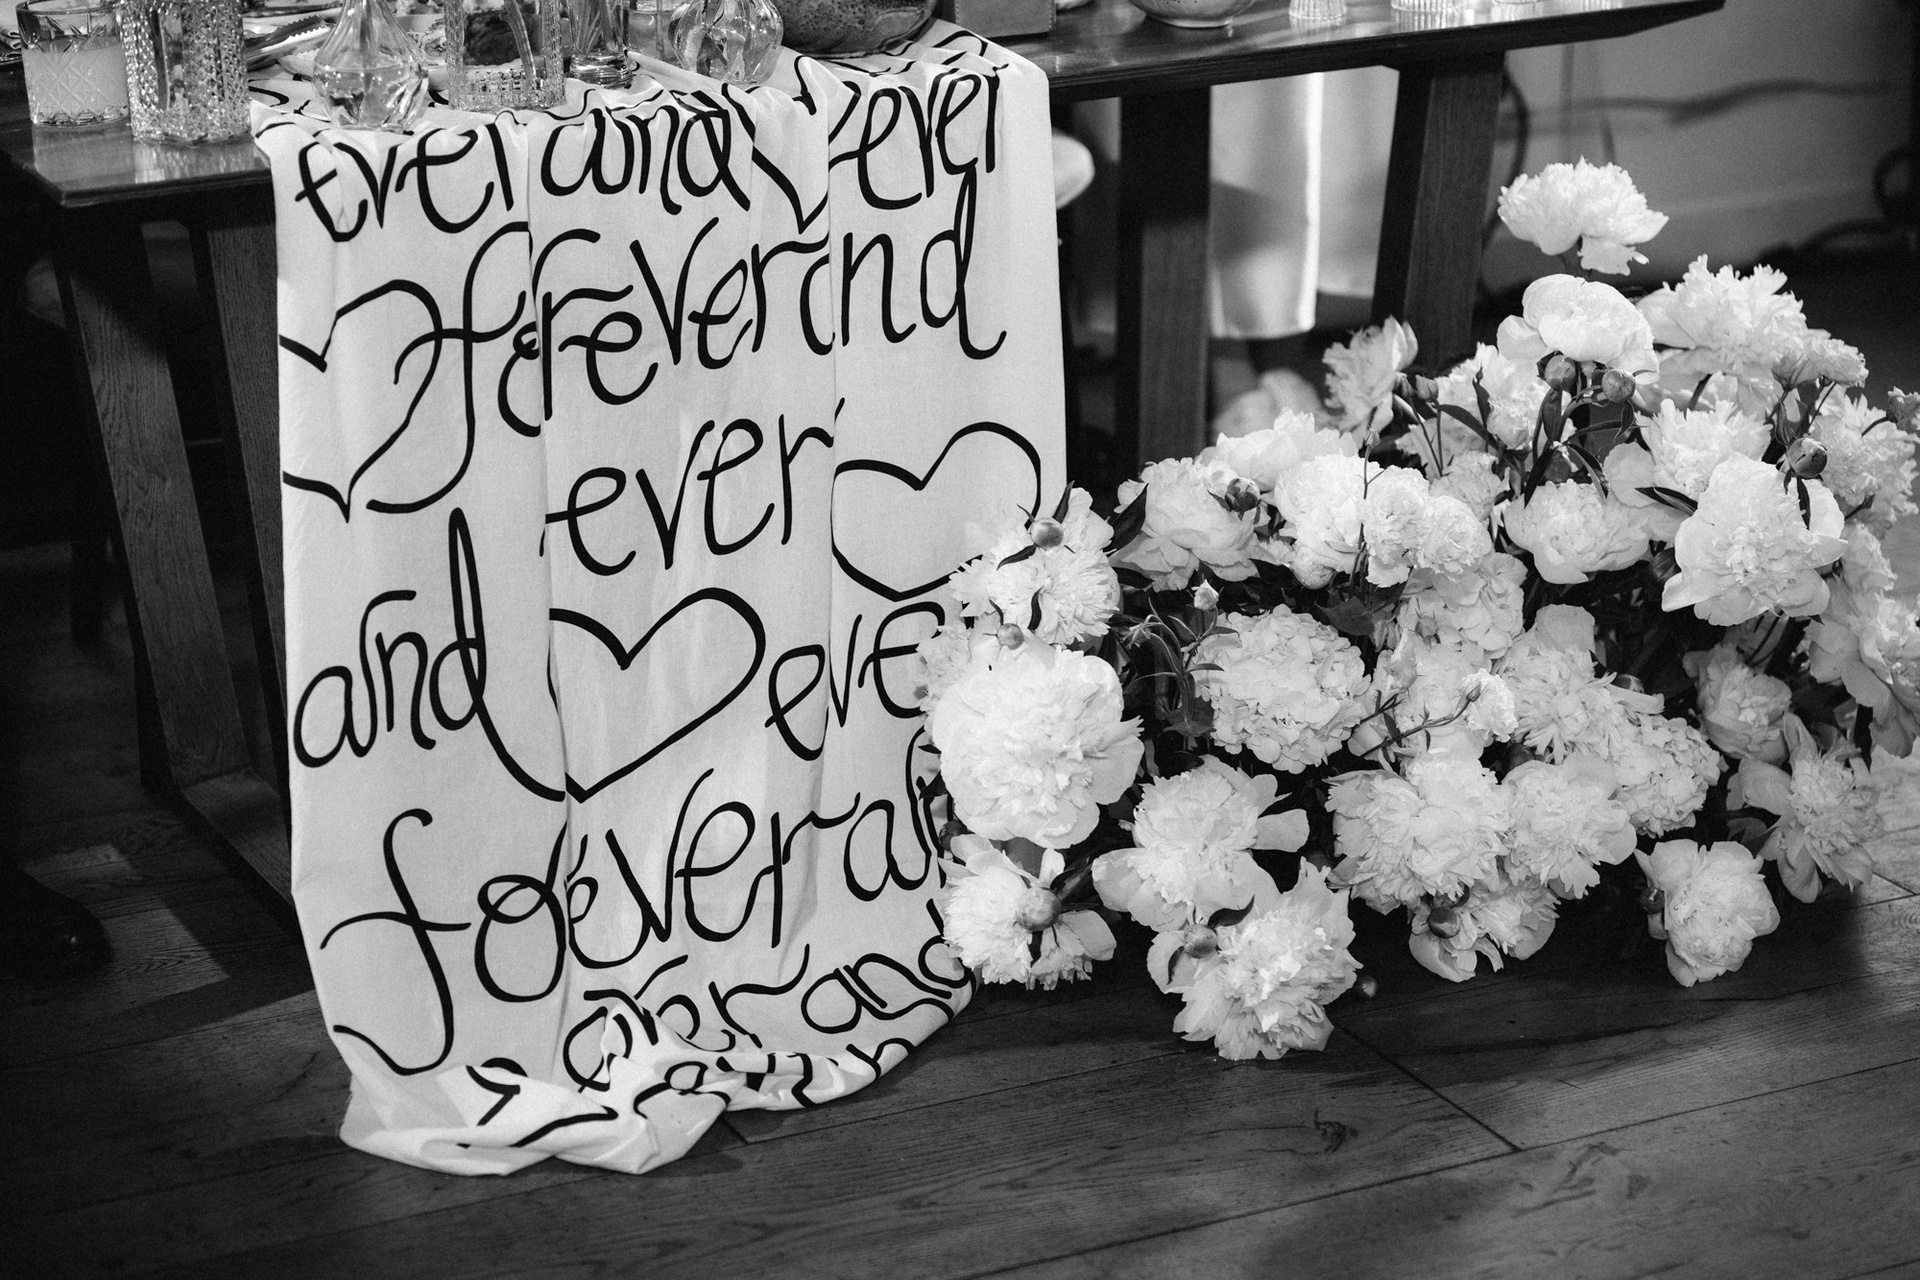 ever and ever
forever and
ever
and eve
forever an
ever and